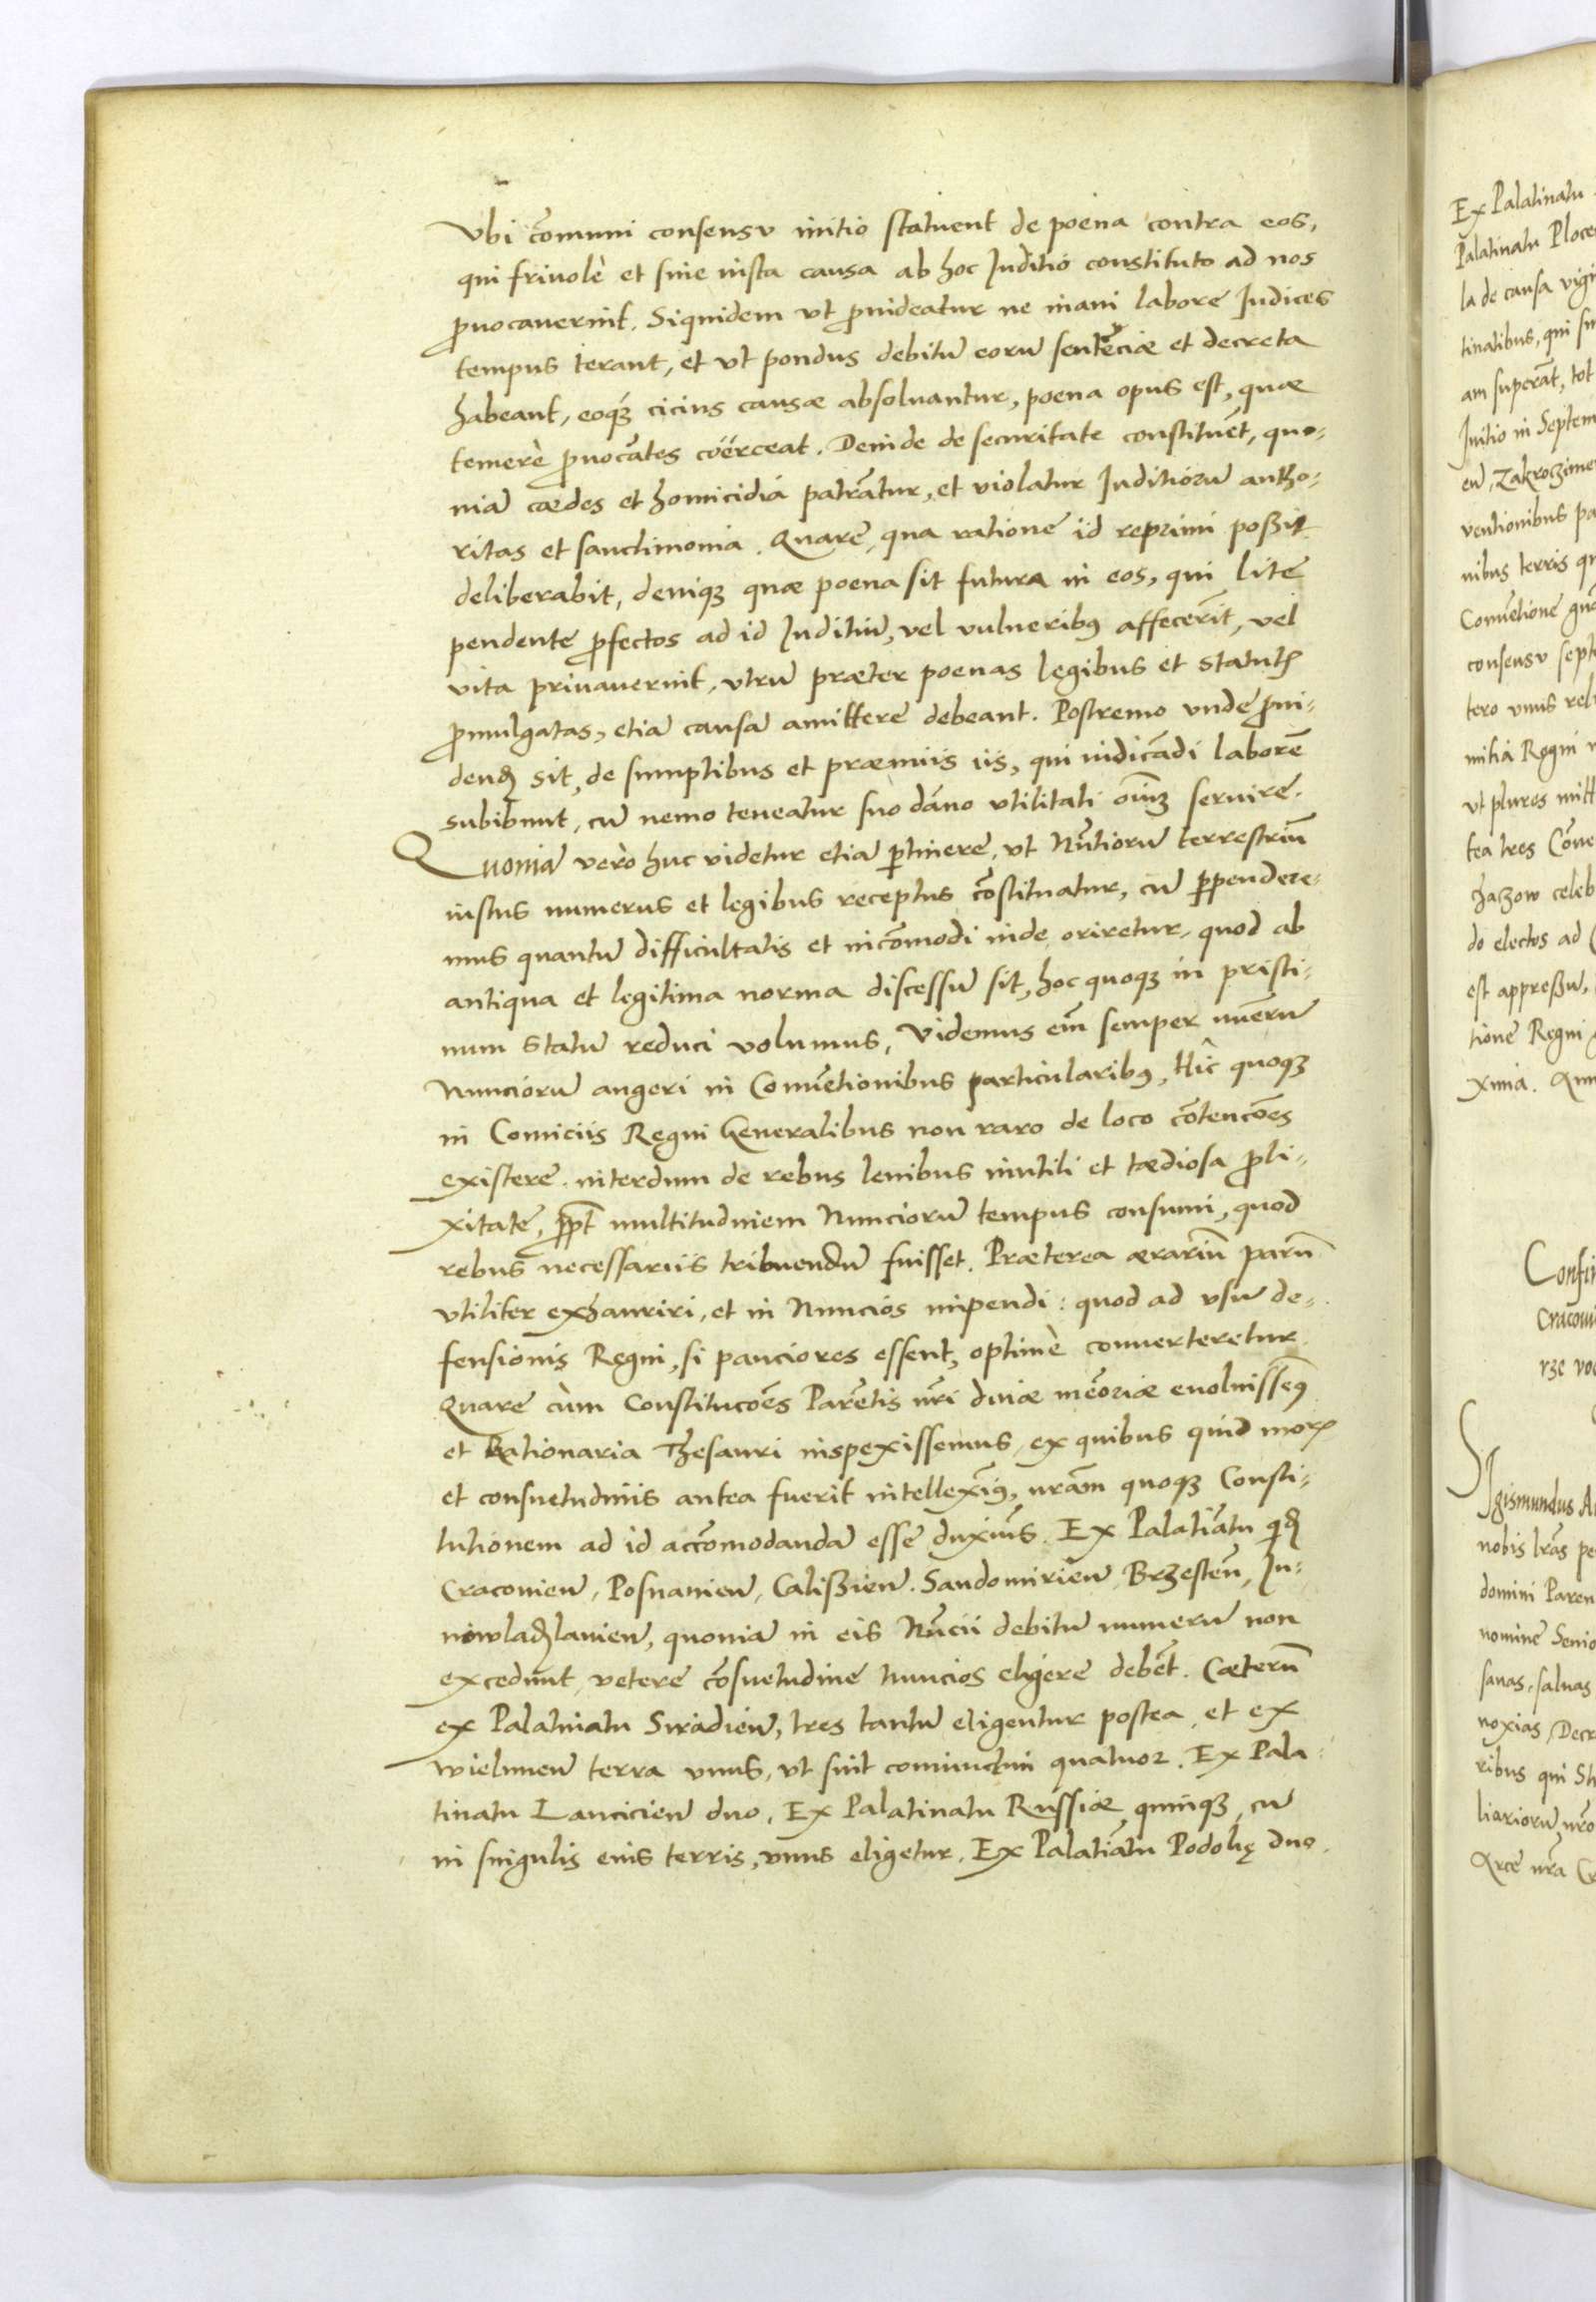 Vbi cõmuni consensu initio statuent de poena contra eos,
qui friuolè et sine iusta causa ab hoc Juditio constituto ad nos
ꝓuocauerint. Siquidem vt ꝓuideatur ne inani labore Judices
tempus terant, et vt pondus debitũ eorũ sentẽciæ et decreta
habeant, eoqꝫ cicius causæ absoluantur, poena opus est, quæ
temerè ꝓuocãtes coërceat. Deinde de securitate constituẽt, quo-
niã cædes et homicidia patrãtur, et violatur Juditiorũ autho-
ritas et sanctimonia. Quare, qua ratione id reprimi poßit
deliberabit, deniqꝫ quæ poena sit futura in eos, qui lite
pendente ꝓfectos ad id Juditiũ, vel vulneribꝰ affecerĩt, vel
vita priuauerint, vtrũ præter poenas legibus et statutꝭ
ꝓmulgatas, etiã causã amittere debeant. Postremo vnde ꝓui-
dendꝫ sit, de sumptibus et præmiis iis, qui iudicãdi laborẽ
subibunt, cũ nemo teneatur suo dãno vtilitati oĩmꝫ seruire.
Quoniã verò huc videtur etiã ꝑtinere, vt Nũtiorũ terrestriũ
iustus numerus et legibus receptus cõstituatur, cũ ꝑpendere-
mus quantũ difficultatis et incõmodi inde oriretur, quod ab
antiqua et legitima norma discessũ sit, hoc quoqꝫ in pristi-
num statũ reduci volumus, Videmus eĩm semper nũerũ
Nunciorũ augeri in Conuẽtionibus particularibꝰ, Hîc quoqꝫ
in Comiciis Regni Generalibus non raro de loco cõtencões
existere. interdum de rebus leuibus inutili et tædiosa ꝓli-
xitate, ꝓpt multitudinem Nunciorũ tempus consumi, quod
rebus necessariis tribuendũ fuisset. Præterea ærariũ parũ
vtiliter exhauriri, et in Nuncios impendi: quod ad vsũ de-
fensionis Regni, si pauciores essent, optimè conuerteretur
Quare cùm Constitucões Parẽtis nr̃i diuæ mẽoriæ euoluissẽꝰ
et Rationaria Thesauri inspexissemus, ex quibus quid morꝭ
et consuetudinis antea fuerit intellexĩꝰ, nrãm quoqꝫ Consti-
tutionem ad id accõmodandã esse duxiũs. Ex Palatiãtu qꝫ
Craconieñ, Posnanieñ, Calißieñ. Sandomirieñ, Brzesteñ, Ju-
niowladꝫlauieñ, quoniã in eis Nũcii debitũ numerũ non
excedunt, vetere cõsuetudine nuncios eligere debẽt. Cæterũ
ex Palatinatu Siradieñ, tres tantũ eligentur postea, et ex
wieluneñ terra vnus, vt sint coniunctim quatuor. Ex Pala-
tinatu Lancicieñ duo. Ex Palatinatu Russiæ quinqꝫ, cũ
in singulis eius terris, vnus eligetur. Ex Palatiãtu Podolię duo.
Ex Palatinatu
Palatinatu
la de causa
tinatibus, qui
am superãt, tot
Initio in Septem
ventionibus
nibus terris
Conuẽtione
consensu
tero vnus
Regni
vt plures
tea tres
do electos ad
est appreßũ,
tione Regni
nobis lrãs
domini
nomine
sanas, saluas
noxias,
ribus qui